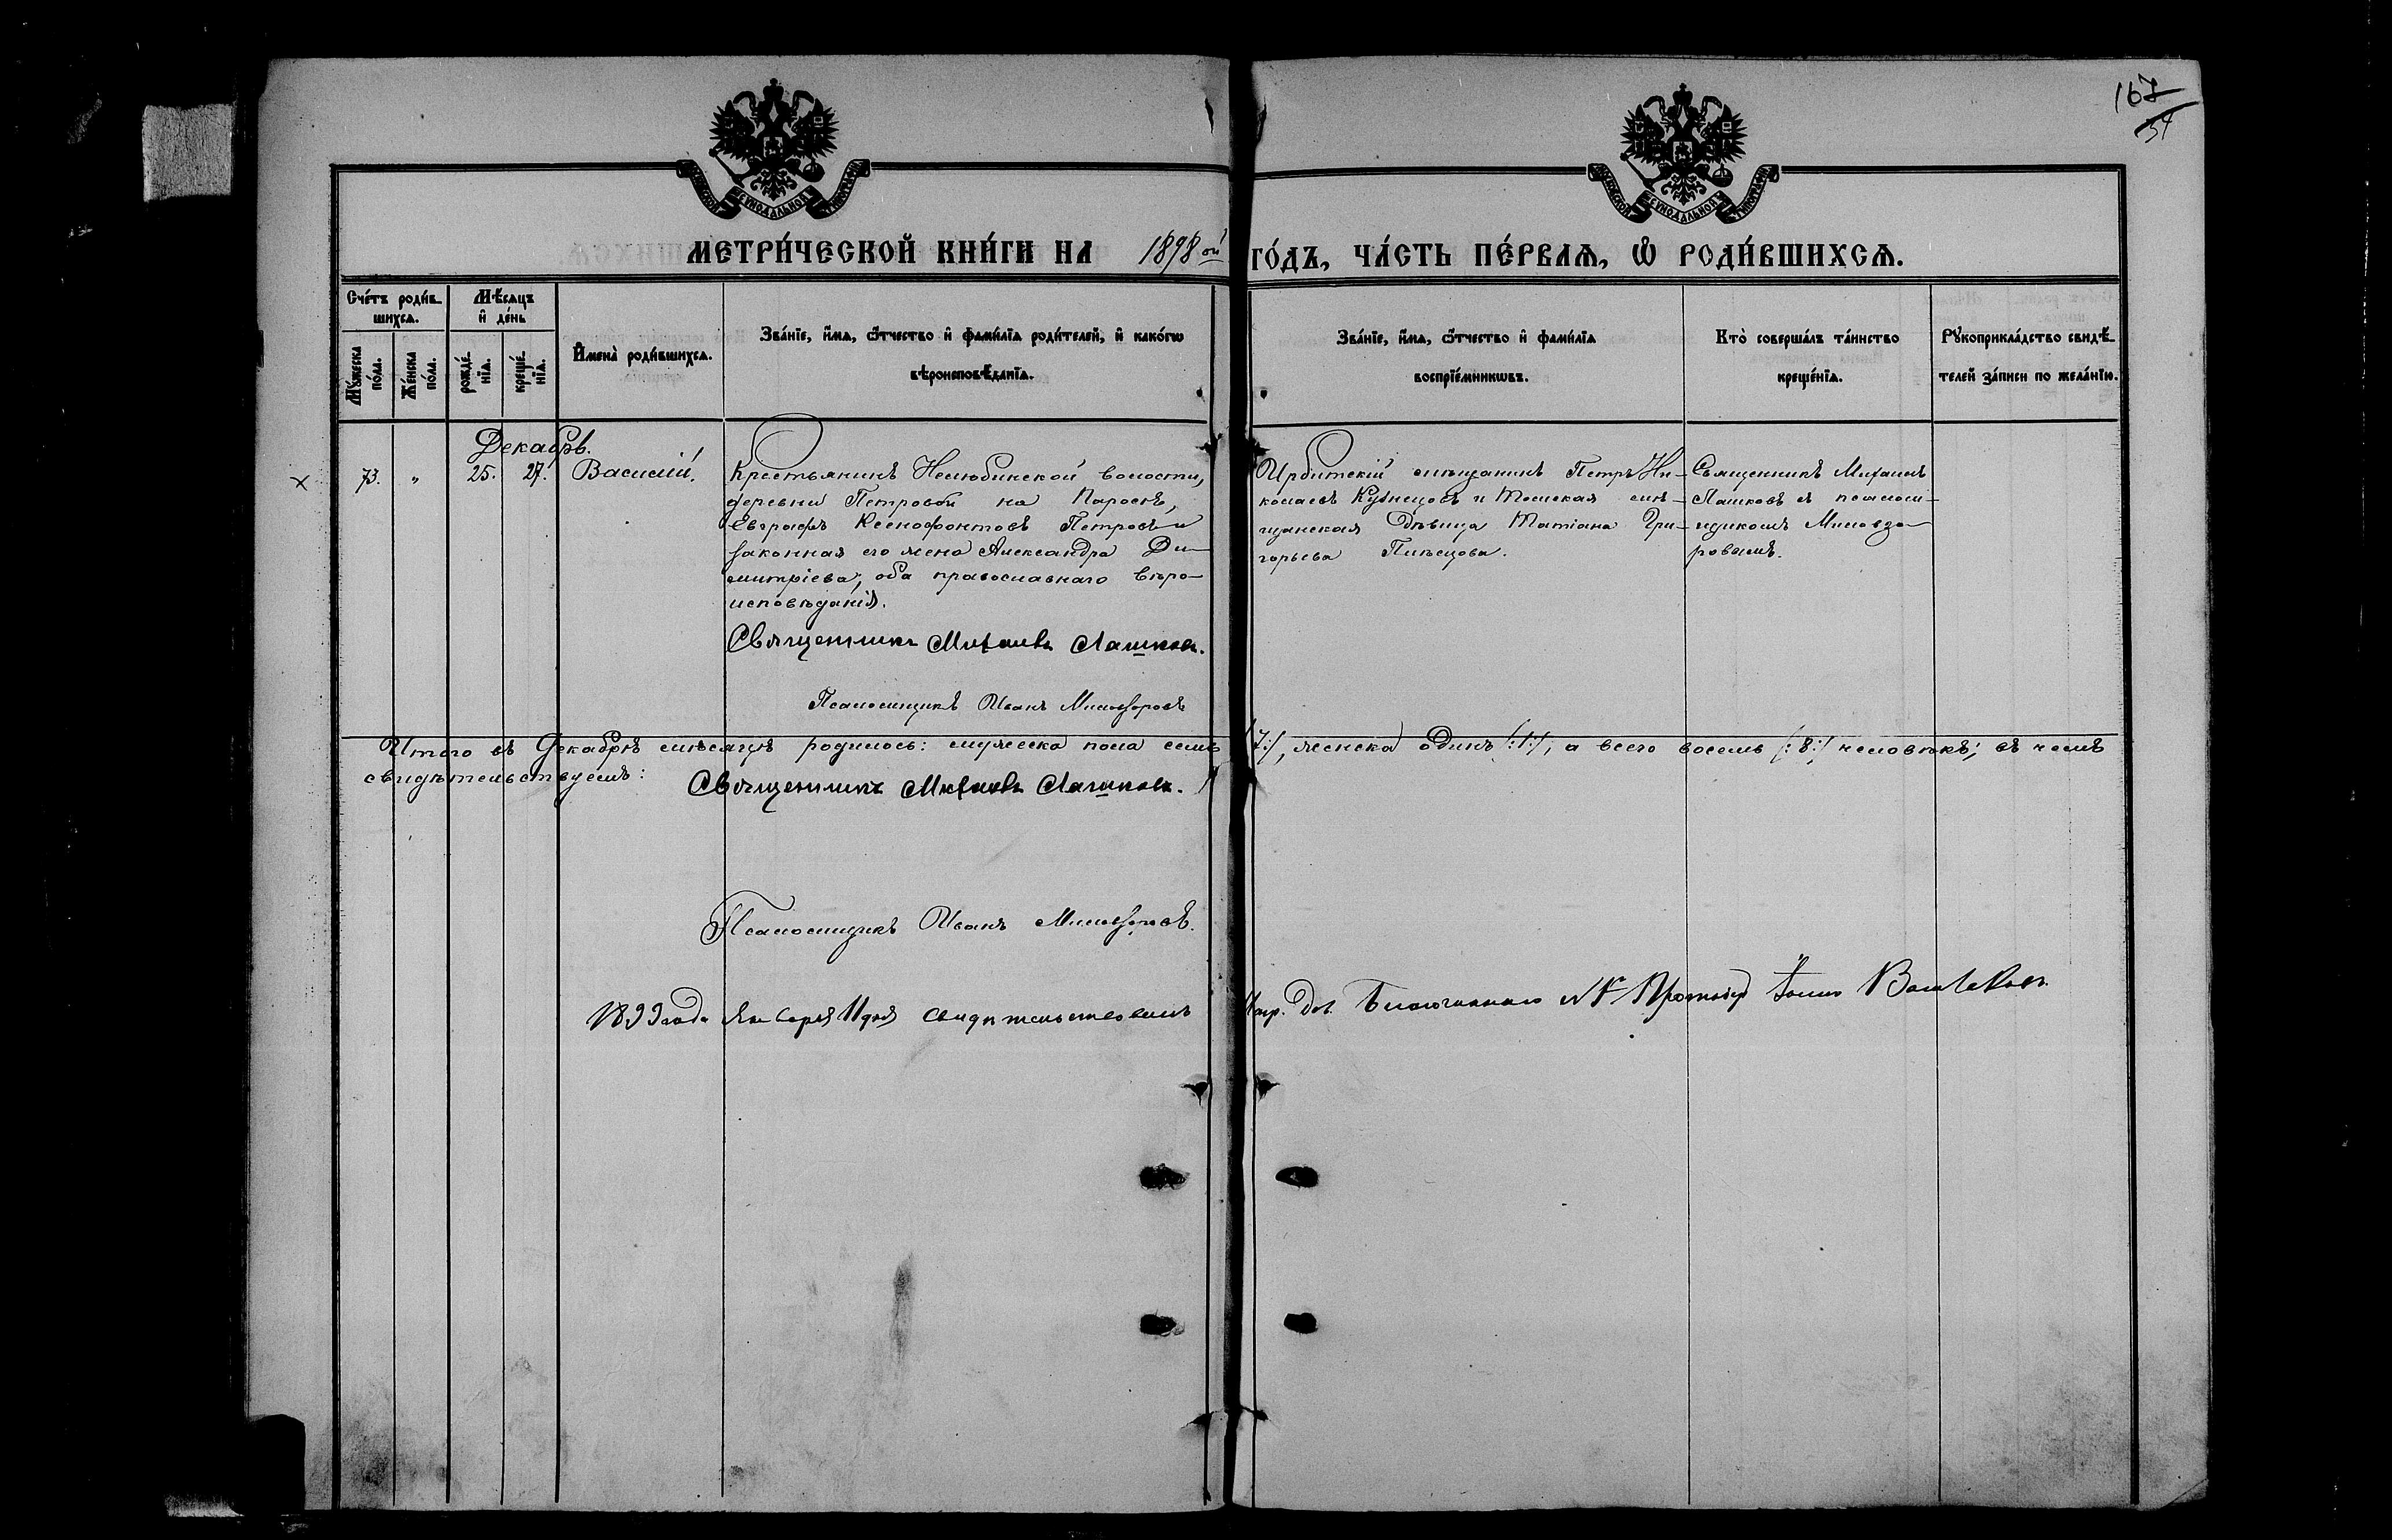 167
34
МОСКОВСКОЙ СѴНОДАЛЬНОЙ ТИПОГРАФІИ
МОСКОВСКОЙ СѴНОДАЛЬНОЙ ТИПОГРАФІИ
МЕТРИ́ЧЕСКОЙ КНИ́ГИ НА 1898 ой ГО́ДЪ, ЧА́СТЬ ПЕ́РВАѦ, Ѿ РОДИ́ВШИХСѦ.
Сче́тъ роди́в-
шихсѧ.
Мꙋ́жеска
по́ла.
Же́нска
по́ла.
Мѣ́сѧцъ
и҆ де́нь
рожде́-
нїѧ.
креще́-
нїѧ.
И҆мена̀ роди́вшихсѧ.
Зва́нїе, и҆́мѧ, ѻ҆́тчество и҆ фами́лїѧ роди́телей, и҆ како́гѡ
вѣроисповѣ́данїѧ.
Зва́нїе, и҆́мѧ, ѻ҆́тчество и҆ фами́лїѧ
воспрїе́мникѡвъ.
Кто̀ соверша́лъ та́инство
креще́нїѧ.
Рꙋкоприкла́дство свидѣ́-
телей за́писи по жела́нїю.
Декабрь.
73. " 25. 27. Василій.
Крестьянинъ Нелюбинской волости,
деревни Петровой на Поросѣ,
Евграфъ Ксенофонтовъ Петровъ и
законная его жена Александра Ди-
митріева, оба православнаго вѣро-
исповѣданія.
Священникъ Михаилъ Лашковъ.
Псаломщикъ Иванъ Миловзоровъ
Ирбитскій мѣщанинъ Петръ Ни-
колаевъ Кузнецовъ и Томская мѣ-
щанская дѣвица Татіана Гри-
горьева Пивцова.
Священникъ Михаилъ
Лашковъ съ псалом-
щикомъ Миловзо-
ровымъ.
Итого въ Декабрѣ мѣсяцѣ родилось: мужеска пола семь /:7:/, женска одинъ /:1:/, а всего восемь /:8:/ человѣкъ; въ чемъ
свидѣтельствуемъ:
Священникъ Михаилъ Лашковъ.
Псаломщикъ Иванъ Миловзоровъ.
1899 года Января 11 дня свидѣтельствовалъ Благочинный